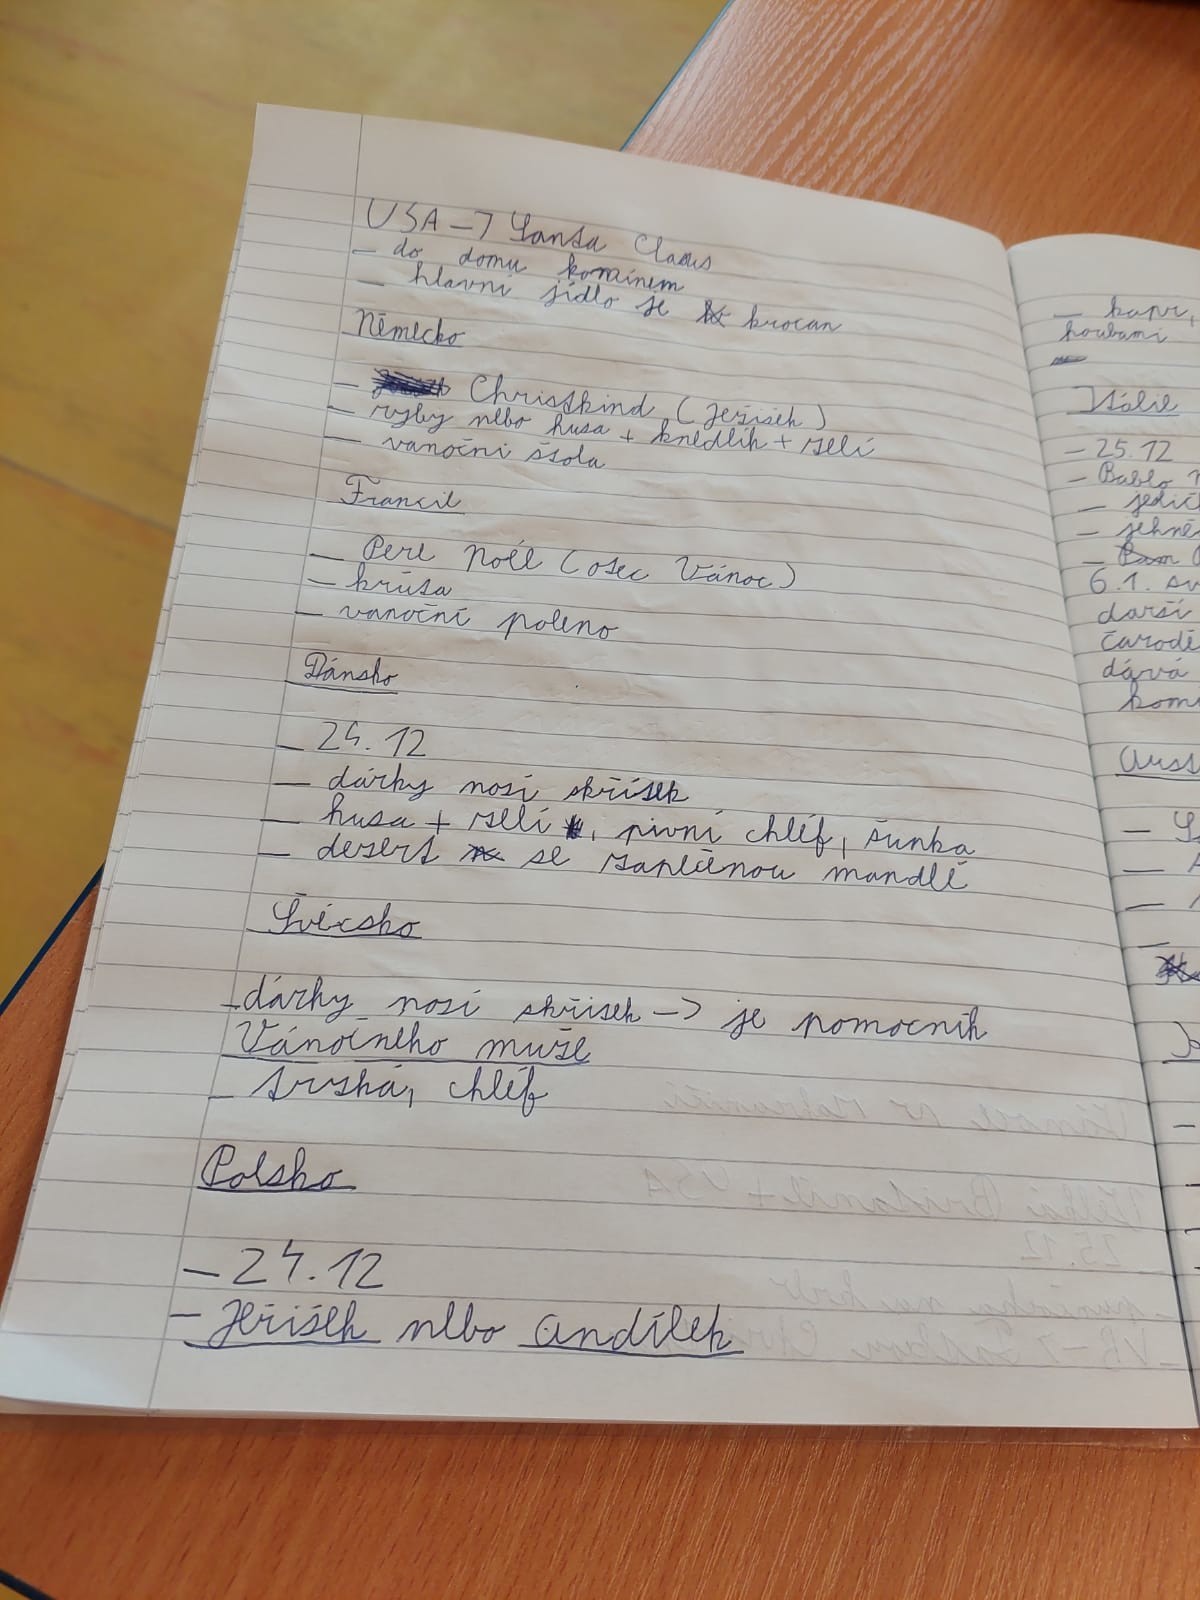 USA -> Santa Claus
- do domu komínem
- hlavní jídlo je krocan
Německo
- Christkind (Ježíšek)
- ryby nebo husa + knedlík + zelí
- vánoční štola
Francie
- Pere Noël (otec Vánoc)
- krůta
- vánoční poleno
Dánsko
- 24. 12
- dárky nosí skřítek
- husa + zelí, pivní chléb, šunka
- dezert se zapečenou mandlí
Švédsko
- dárky nosí skřítek -> je pomocník
Vánočního muže
- treska, chléb
Polsko
- 24. 12
- Ježíšek nebo andílek
- kapr,
houbami
Itálie
- 25. 12
- Bablo
-
- jehně
-
6. 1.
darší
čarodě
dává
komí